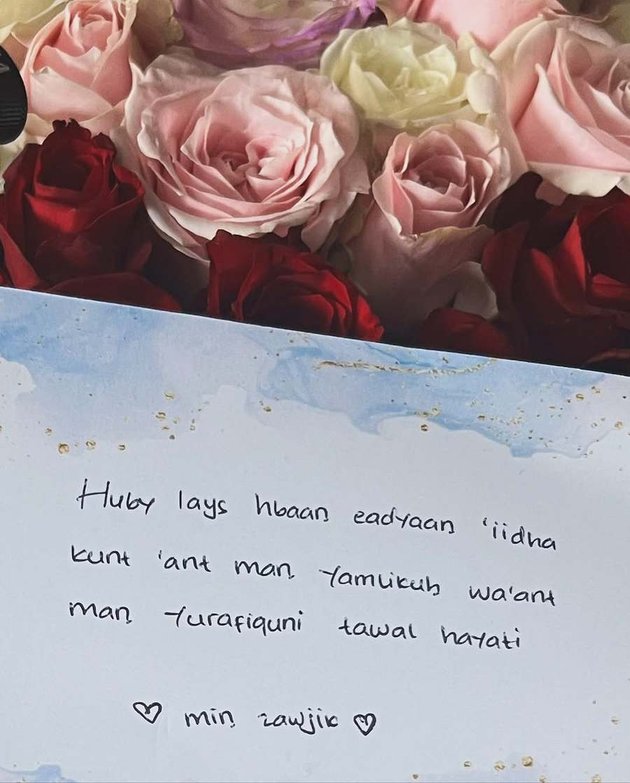 Huby lays hbaan eadyaan 'iidha
kunt 'ant man yamlikuh wa'ant
man yurafiquni tawal hayati
♡ min zawjik ♡